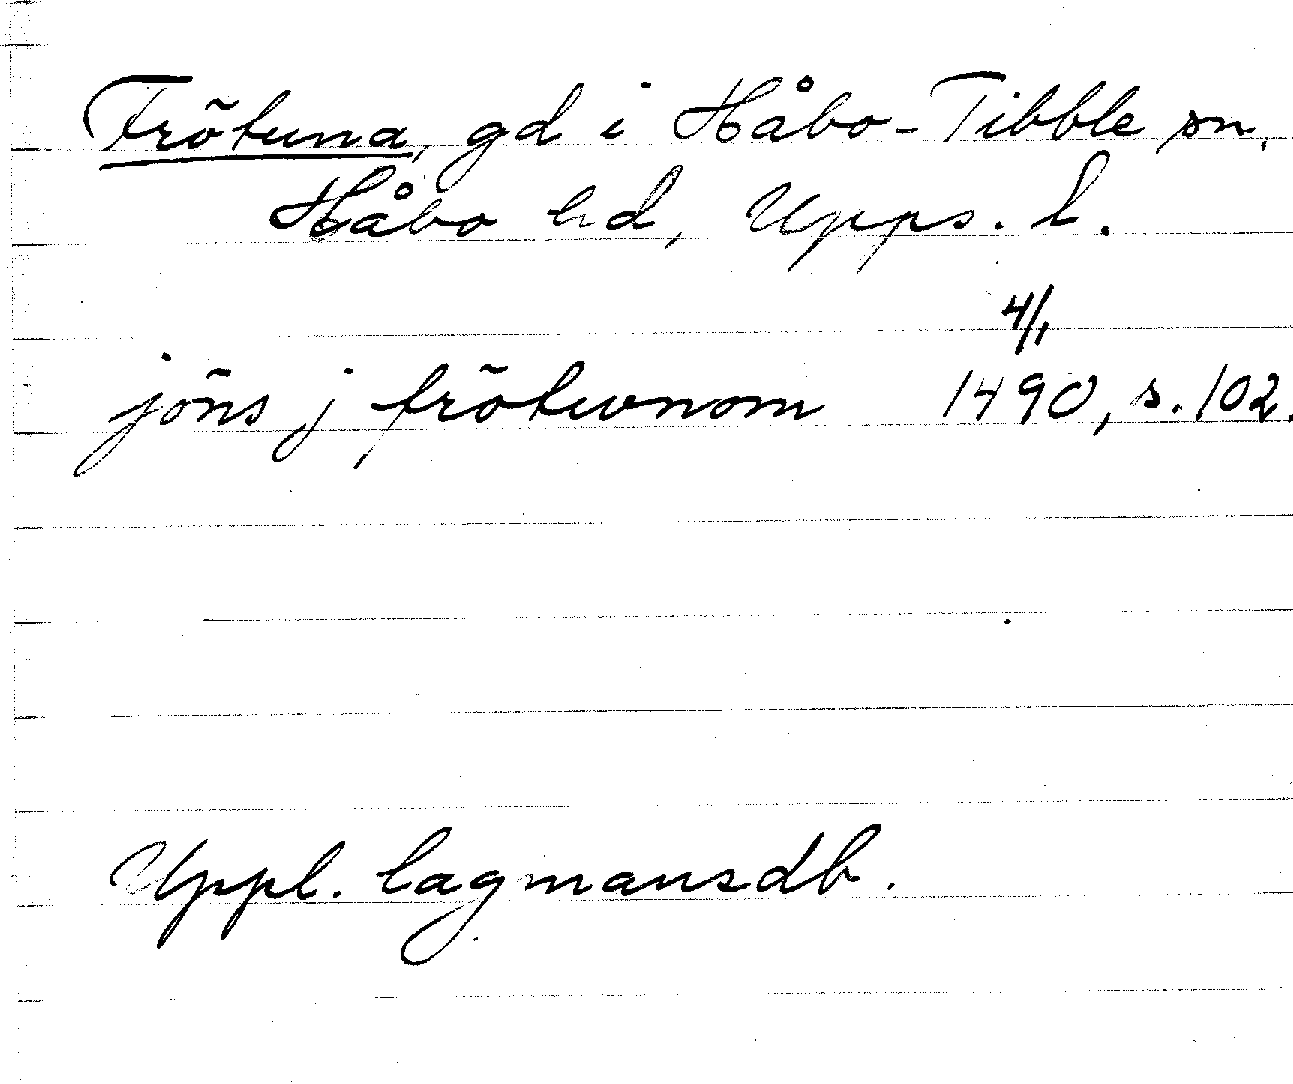 Frötuna, gd i Håbo-Tibble sn.
Håbo hd, Upps. l.
4/1
jöns j frötwnom 1490, s. 102.
Uppl. lagmansdb.